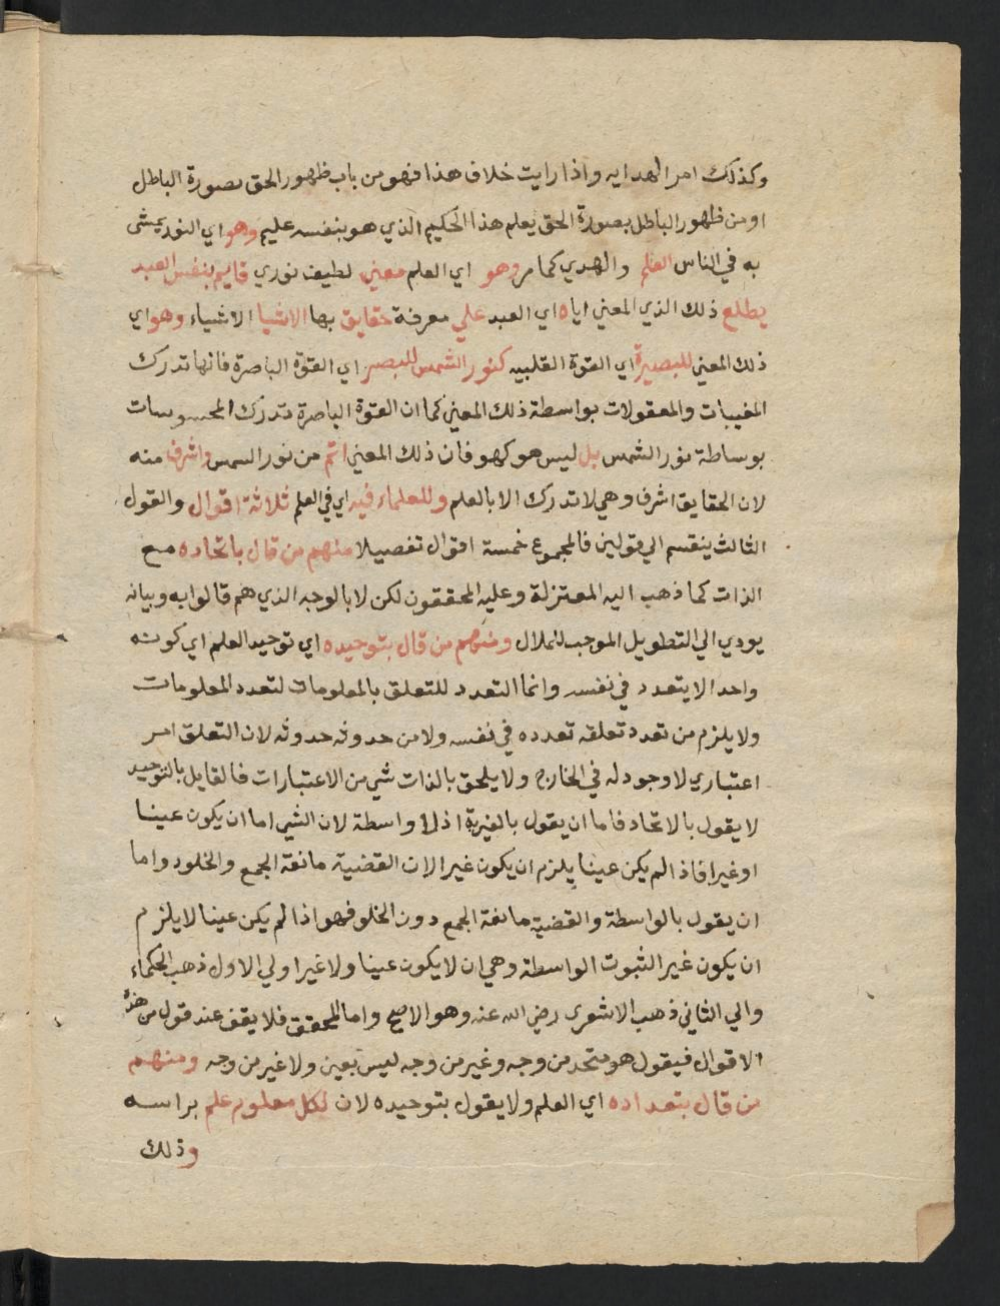 وكذلك امر الهدايه واذا رايت خلاف هذا فهو من باب ظهور الحق بصورة الباطل
او من ظهور الباطل بصورة الحق يعلم هذا الحكيم الذي هو بنفسه عليم وهو اي النور يمشى
به في الناس العلم والهدي كما مر وهو اي العلم معني لطيف نوري قايم بنفس العبد
يطلع ذلك الذي المعني اياه اي العبد علي معرفة حقايق بها الاشيا الاشياء وهو اي
ذلك المعني للبصيرة اي القوة القلبيه كنور الشمس للبصر اي القوة الباصرة فانها تدرك
المغيبات والمعقولات بواسطة ذلك المعني كما ان القوة الباصرة تدرك المحسوسات
بوساطة نور الشمس بل ليس هو كهو فان ذلك المعني اتم من نور الشمس واشرف منه
لان الحقايق اشرف وهي لا تدرك الا بالعلم وللعلماء فيه اي في العلم ثلاثة اقوال والقول
الثالث ينقسم الي قولين فالمجموع خمسة اقوال تفصيلا منهم من قال باتحاده مع
الذات كما ذهب اليه المعتزلة وعليه المحققون لكن لا بالوجه الذي هم قالوا به وبيانه
يودي الي التطويل الموجب للملال ومنهم من قال بتوحيده اي توحيد العلم اي كونه
واحدا لا يتعدد في نفسه وانما التعدد للتعلق بالمعلومات لتعدد المعلومات
ولا يلزم من تعدد تعلقه تعدده في نفسه ولا من حدوثه حدوثه لان التعلق امر
اعتباري لا وجود له في الخارج ولا يلحق بالذات شي من الاعتبارات فالقايل بالتوحيد
لا يقول بالاتحاد فاما ان يقول بالغيرية اذ لا واسطة لان الشي اما ان يكون عينا
او غيرا فاذا لم يكن عينا يلزم ان يكون غيرا لان القضية مانعة الجمع والخلو واما
ان يقول بالواسطة والقضية مانعة الجمع دون الخلو فهو اذا لم يكن عينا لا يلزم
ان يكون غير الثبوت الواسطة وهي ان لا يكون عينا ولا غيرا ولي الاول ذهب الحكماء
والي الثاني ذهب الاشعري رضي الله عنه وهو الاصح واما المحقق فلا يقف عند قول من هذه
الاقوال فيقول هو متحد من وجه وغير من وجه ليس بعين ولا غير من وجه ومنهم
من قال بتعداده اي العلم ولا يقول بتوحيده لان لكل معلوم علم براسه
وذلك